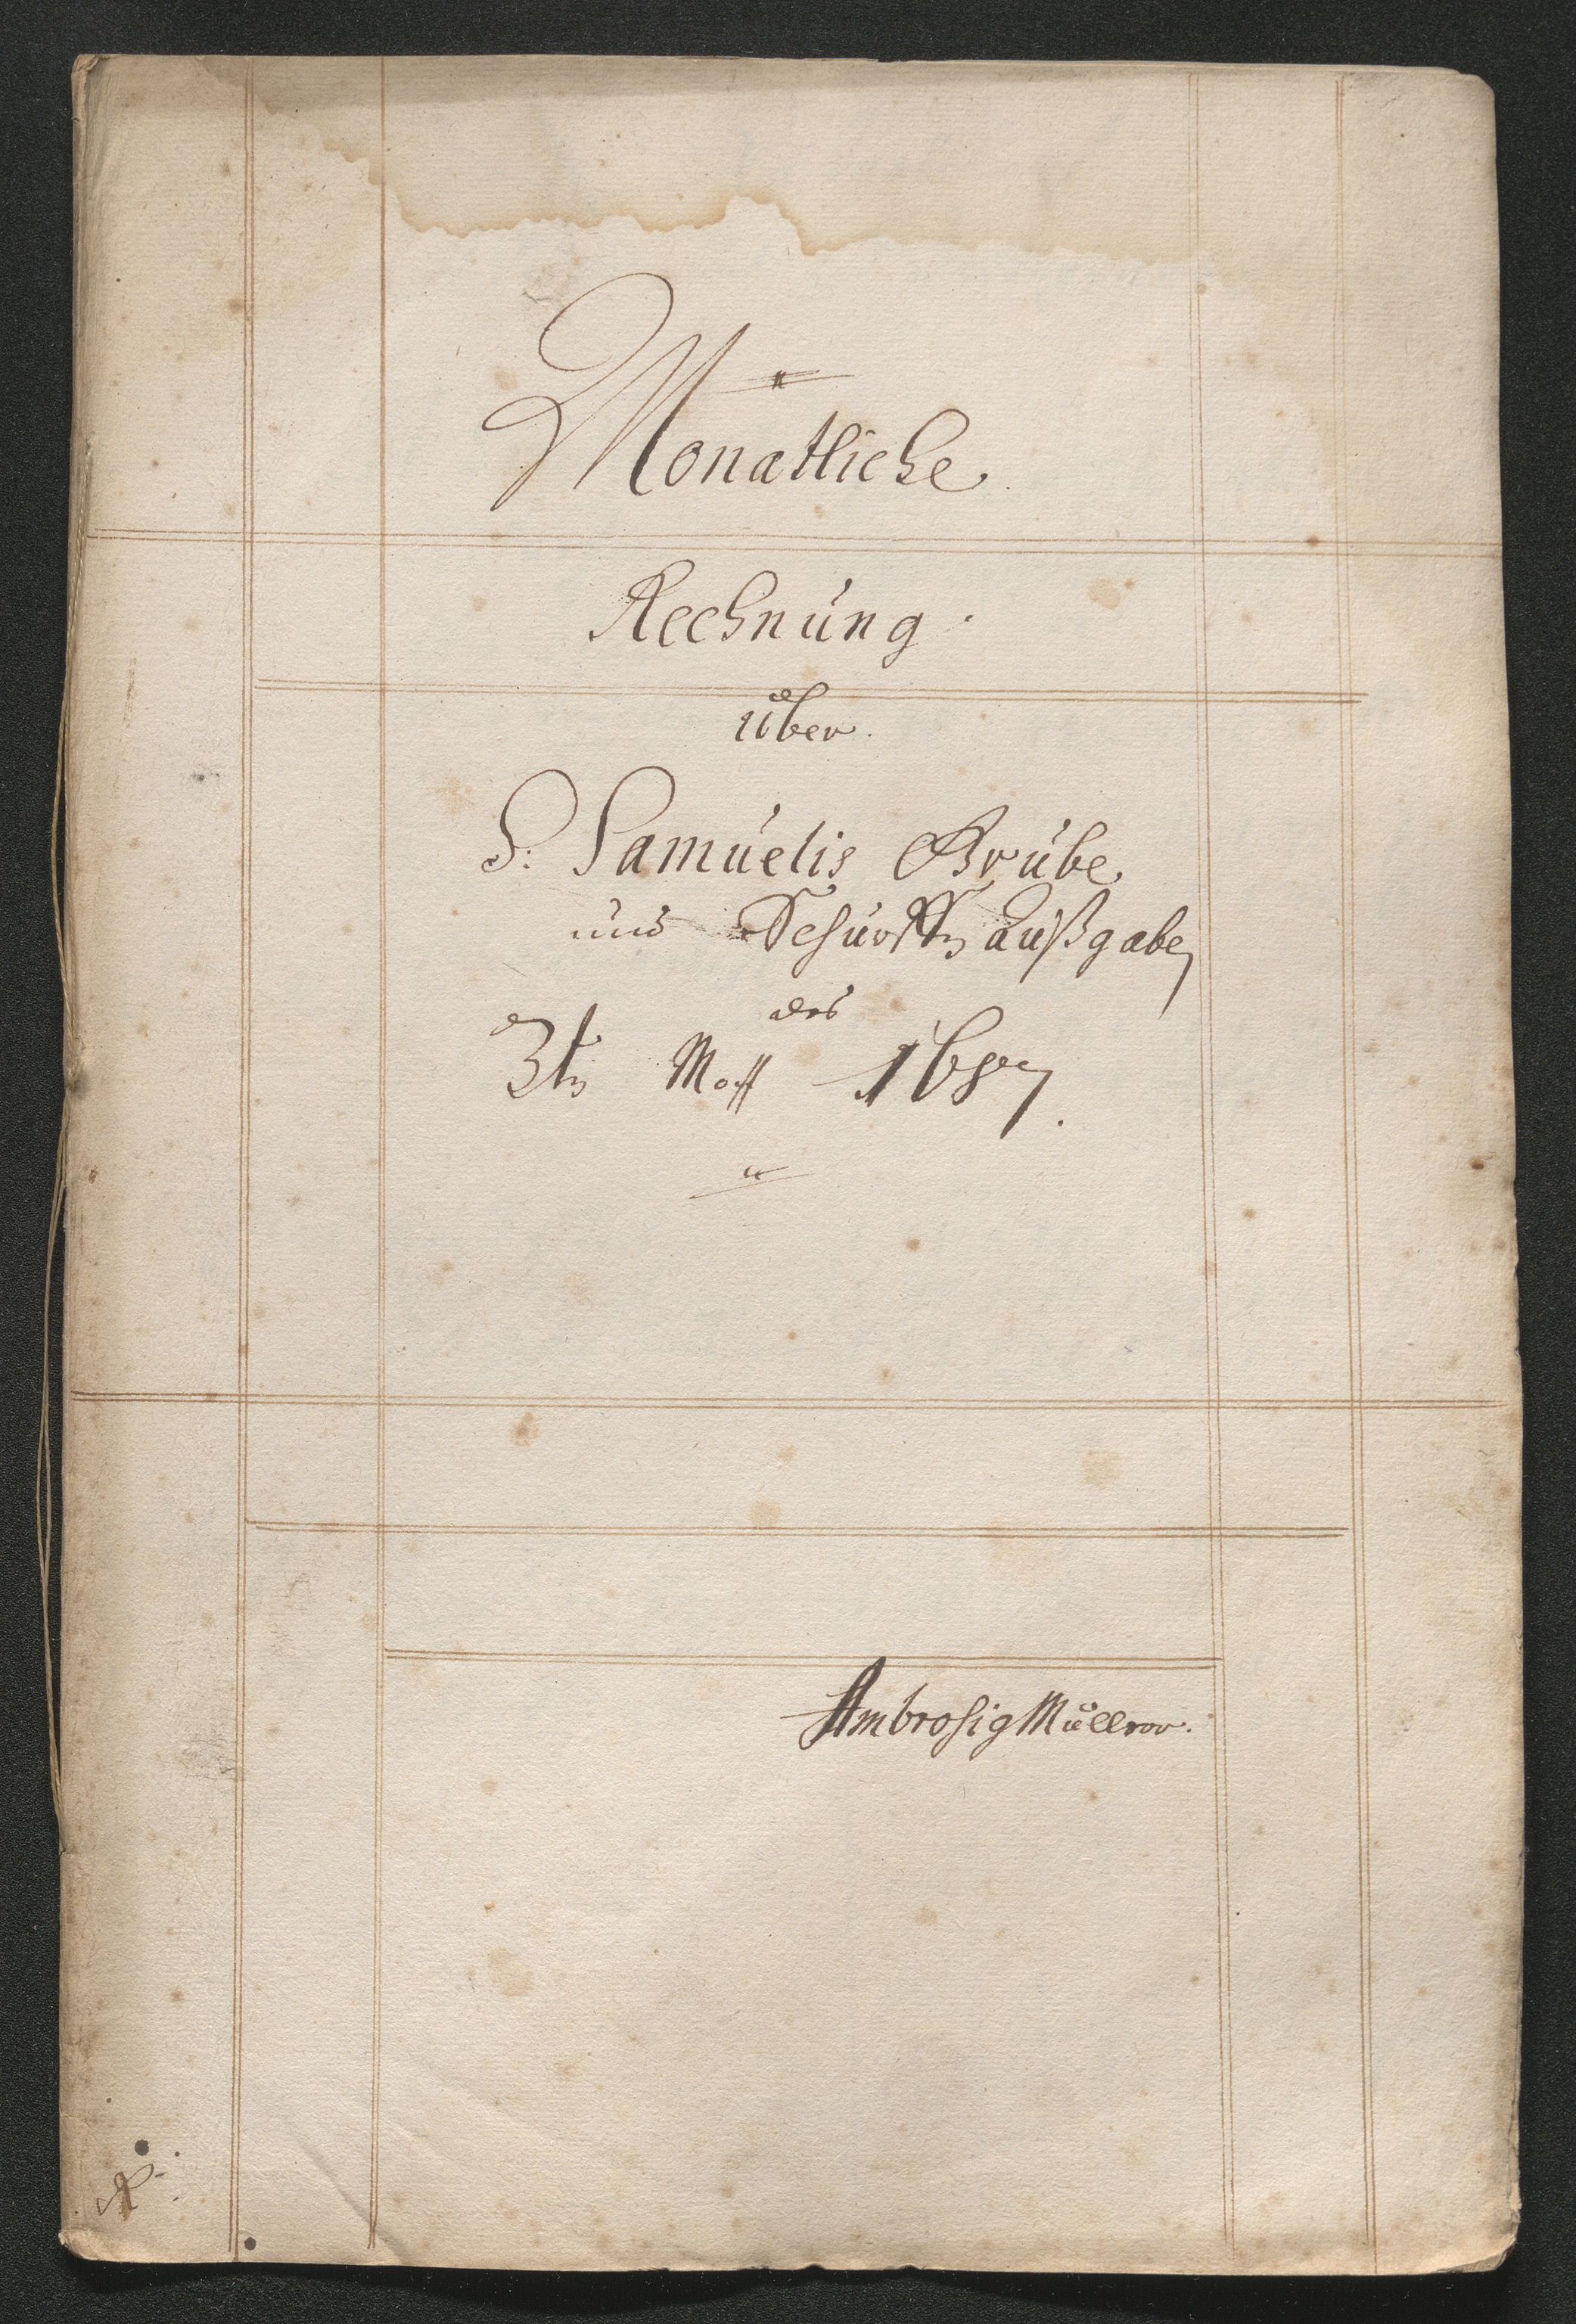 Monatliche
Rechnung
über
S: Samuelis Grube
und Schurfftn Außgaben
des
3tn 1687.
Ambrosig Müller.